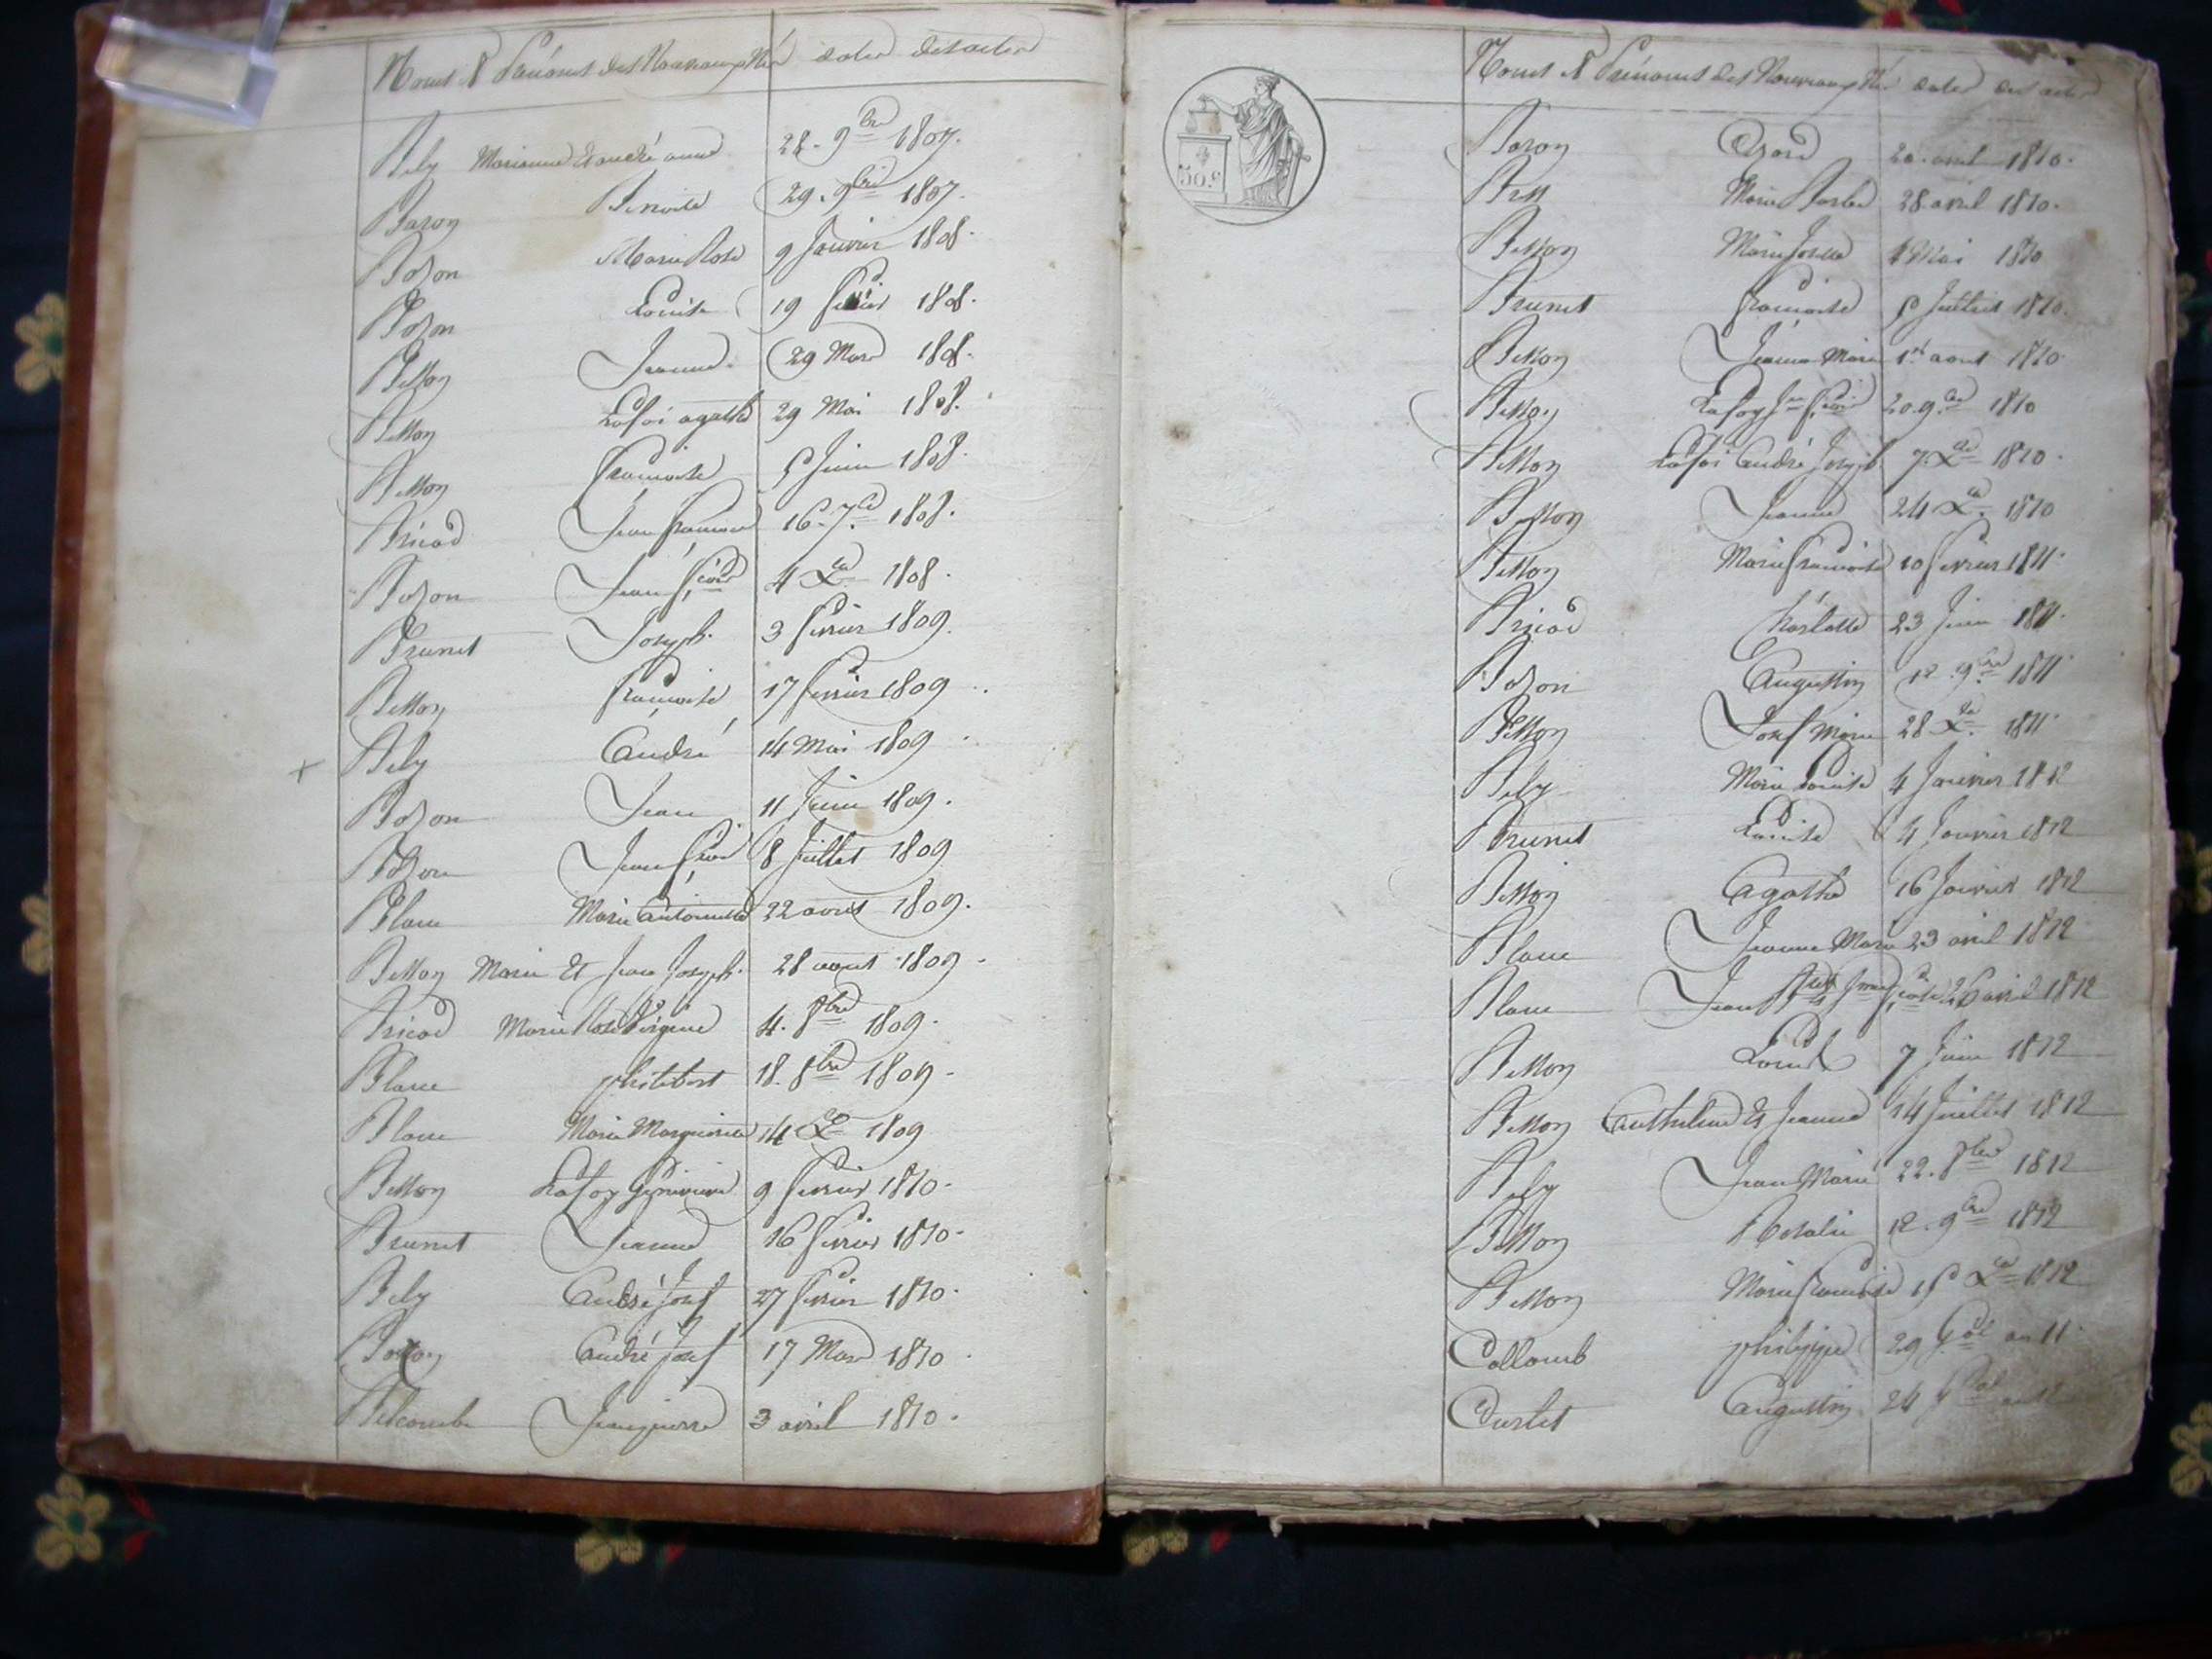 Noms & Prénoms des Nouveaux Nés dates des actes
Bely Marianne & andré anne 28. 9bre 1807.
Baron Benoite 29. 9bre 1807.
Bozon Marie Rose 9 Janvier 1808.
Bozon Louise 19 fevrier 1808.
Betton Jeanne 29 Mars 1808.
Betton Lafoi agathe 29 Mai 1808.
Betton francoise 5 Juin 1808.
Bricod Jean francois 16. 7bre 1808.
Bozon Jean 4 Xbre 1808.
Brunet Joseph 3 fevrier 1809.
Betton francoise 17 fevrier 1809.
Bely André 14 Mai 1809
Bozon Jean 11 Juin 1809.
Bozon Jean 8 Juillet 1809
Blanc Marie Antoinette 22 aout 1809.
Betton Marie & Jean Joseph 28 aout 1809.
Bricod Marie Rose Virginie 4. 8bre 1809.
Blanc philibert 18. 8bre 1809.
Blanc Marie Marguerite 14 Xbre 1809
Betton Lafoy Genevieve 9 fevrier 1810.
Brunet Jeanne 16 fevrier 1810.
Bely André Josef 27 fevrier 1810.
André Josef 17 Mars 1810.
Belcombe Jeanpierre 3 avril 1810.
50.c
Noms & Prénoms des Nouveaux Nés dates des actes
Baron 20. avril 1810.
Marie Barbe 28 avril 1810.
Betton Marie Josette 4 Mai 1810
Brunet francoise 5 Juillet 1810.
Betton Jeanne Marie 1er aout 1810
Betton Lafoy 20. 9bre 1810
Betton Lafoi André Joseph 7. Xbre 1810.
Betton Jeanne 24 Xbre 1810
Betton Marie francoise 10 fevrier 1811.
Bricod Charlotte 23 Juin 1811.
Bozon Augustin 12. 9bre 1811.
Betton Josef Marie 28 Xbre 1811.
Bely Marie Louise 4 Janvier 1812
Brunet Louise 4 Janvier 1812
Betton Agathe 16 Janvier 1812
Blanc Jeanne Marie 23 avril 1812
Blanc Jean avril 1812
Betton Louis 7 Juin 1812
Betton Anthelme & Jeanne 14 Juillet 1812
Bely Jean Marie 22. 8bre 1812
Betton Rosalie 12. 9bre 1812
Betton Marie francoise 15 Xbre 1812
Collomb philippe 29 an 11.
Curtet Augustin 24